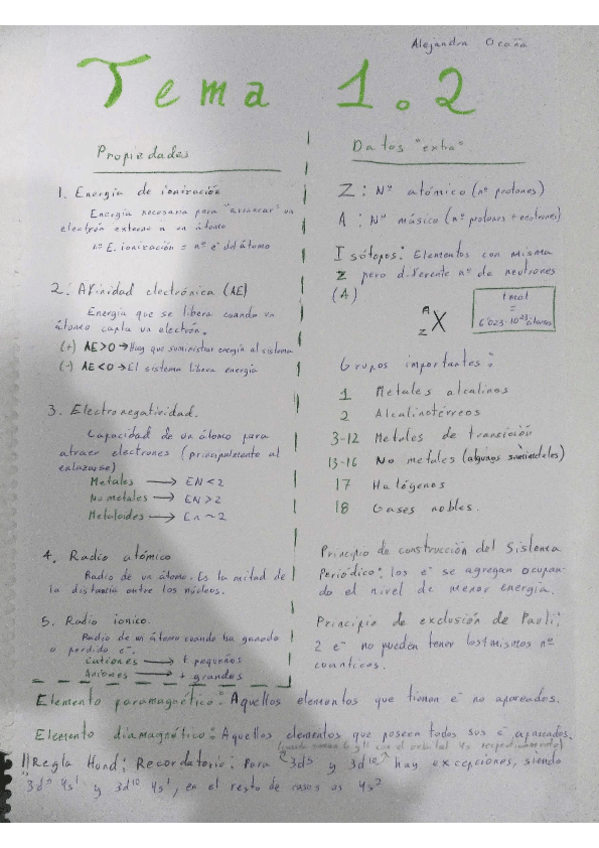 Alejandra Ocaña
Tema 1.2
Propiedades
1. Energía de ionización
Energía necesaria para "arrancar" un
electrón externo a un átomo
nº E. ionización = nº e⁻ del átomo
2. Afinidad electrónica (AE)
Energía que se libera cuando un
átomo capta un electrón.
(+) AE>0 → Hay que suministrar energía al sistema
(-) AE<0 → El sistema libera energía
3. Electronegatividad.
Capacidad de un átomo para
atraer electrones (principalmente al
enlazarse)
Metales → EN<2
No metales → EN>2
Metaloides → En ~ 2
4. Radio atómico
Radio de un átomo. Es la mitad de
la distancia entre los núcleos.
5. Radio ionico.
Radio de un átomo cuando ha ganado
o perdido e⁻.
Cationes → + pequeños
Aniones → + grandes
Datos "extra"
Z: Nº atómico (nº protones)
A: Nº másico (nº protones + neutrones)
Isótopos: Elementos con misma
Z pero diferente nº de neutrones
(A)
A
Z X
1 mol
=
6'023·10²³ átomos
Grupos importantes:
1 Metales alcalinos
2 Alcalinotérreos
3-12 Metales de transición
13-16 No metales (algunos semimetales)
17 Halógenos
18 Gases nobles.
Principio de construcción del Sistema
Periódico: los e⁻ se agregan ocupan-
do el nivel de menor energía.
Principio de exclusión de Paoli:
2 e⁻ no pueden tener los mismos nº
cuanticos.
Elemento paramagnético: Aquellos elementos que tienen e⁻ no apareados.
Elemento diamagnético: Aquellos elementos que poseen todos sus e⁻ apareados.
con el orbital 4s respectivamente)
!!Regla Hund: Recordatorio: Para 3d⁵ y 3d¹⁰ hay excepciones, siendo
3d⁵ 4s¹ y 3d¹⁰ 4s¹, en el resto de casos es 4s²